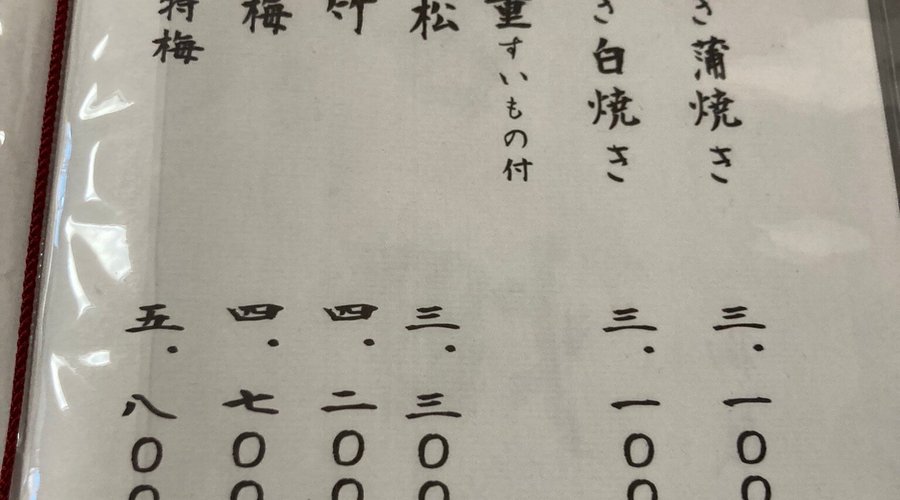 き 蒲焼き 三.一〇〇
き 白焼き 三.一〇〇
重 すいもの付
松 三.三〇〇
竹 四.二〇〇
梅 四.七〇〇
特梅 五.八〇〇